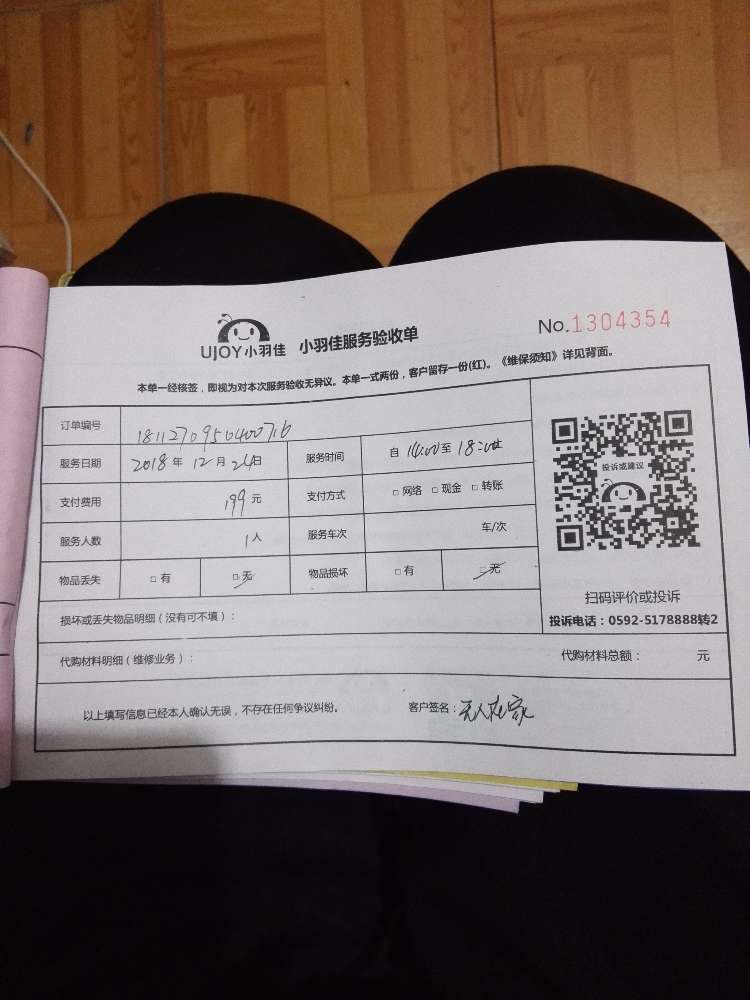 UJOY小羽佳 小羽佳服务验收单
No.1304354
本单一经核签，即视为对本次服务验收无异议。本单一式两份，客户留存一份(红)。《维保须知》详见背面。
订单编号 1811270950400716
服务日期 2018年12月24日 服务时间 自14:00至18:00止
支付费用 199元 支付方式 □网络 □现金 □转账
服务人数 1人 服务车次 车/次
物品丢失 □有 □无 物品损坏 □有 □无
投诉或建议
扫码评价或投诉
投诉电话：0592-5178888转2
损坏或丢失物品明细（没有可不填）：
代购材料明细（维修业务）： 代购材料总额： 元
以上填写信息已经本人确认无误，不存在任何争议纠纷。 客户签名：无人在家